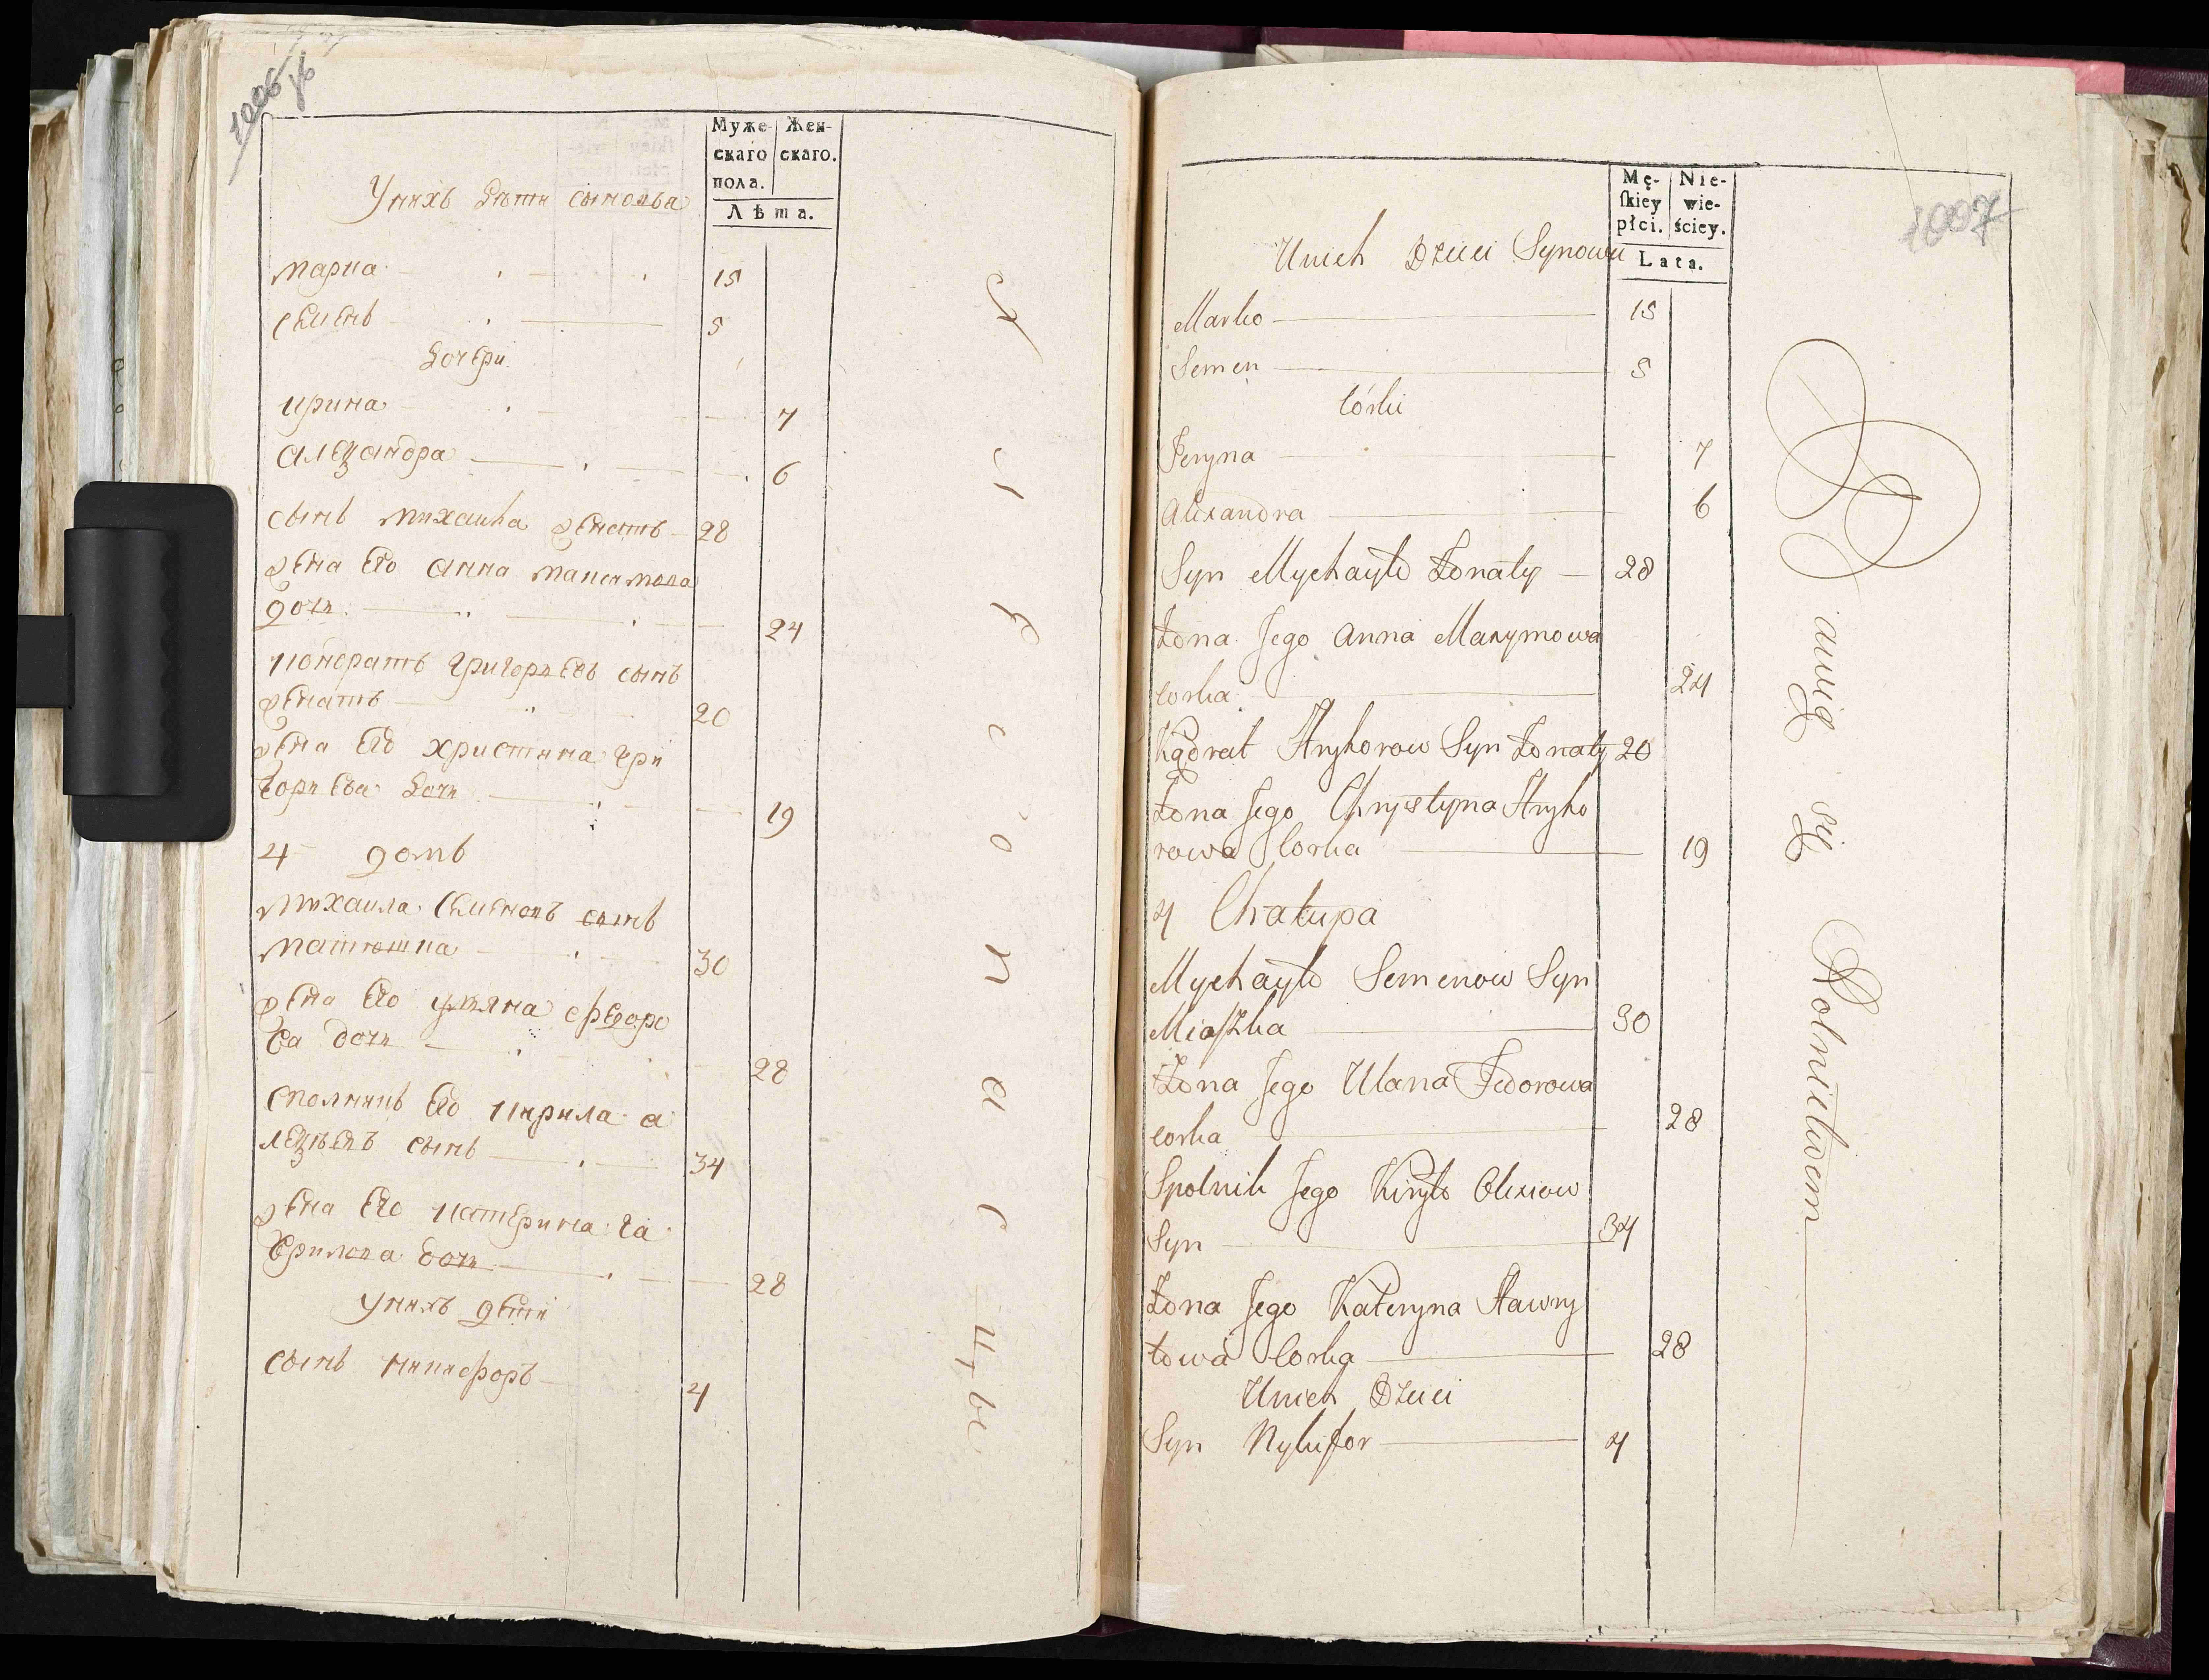 1006 зв
Муже- Жен-
скаго скаго.
пола.
Лѣта.
Унихъ Дѣти сыновья
марко 15
семенъ 5
Дочери
ирина 7
алеѯандра 6
сынъ михаила женатъ 28
жена его анна максимова
дочь 24
кондратъ григорьевъ сынъ
женатъ 20
жена его христина гри
горьева дочь 19
4 домъ
михаила семеновъ сынъ
матюшка 30
жена его уляна ефедоро
ва дочь 28
сполникъ его кирила а
леѯѣевъ сынъ 34
жена его катерина га
врилова дочь 28
унихъ дети
сынъ никифоръ 4
1007
Mę- Nie-
ſkiey wie-
płci. ściey.
Lata.
Unich Dzieci Synowie
Marko 15
Semen 5
Córki
Jeryna 7
Alexandra 6
Syn Mychayło Żonaty 28
Żona Jego Anna Maxymowa
Corka 24
Kądrat Hryhorow Syn Żonaty 20
Żona Jego Chrystyna Hryho
rowa Corka 19
4 Chałupa
Mychayło Semenow Syn
Miaſzka 30
Żona Jego Ulana Fedorowa
Corka 28
Spolnik Jego Kiryło Olexiow
Syn 34
Żona Jego Kateryna Hawry
łowa Corka 28
Unich Dzieci
Syn Nykifor 4
Bawią się Rolnictwem